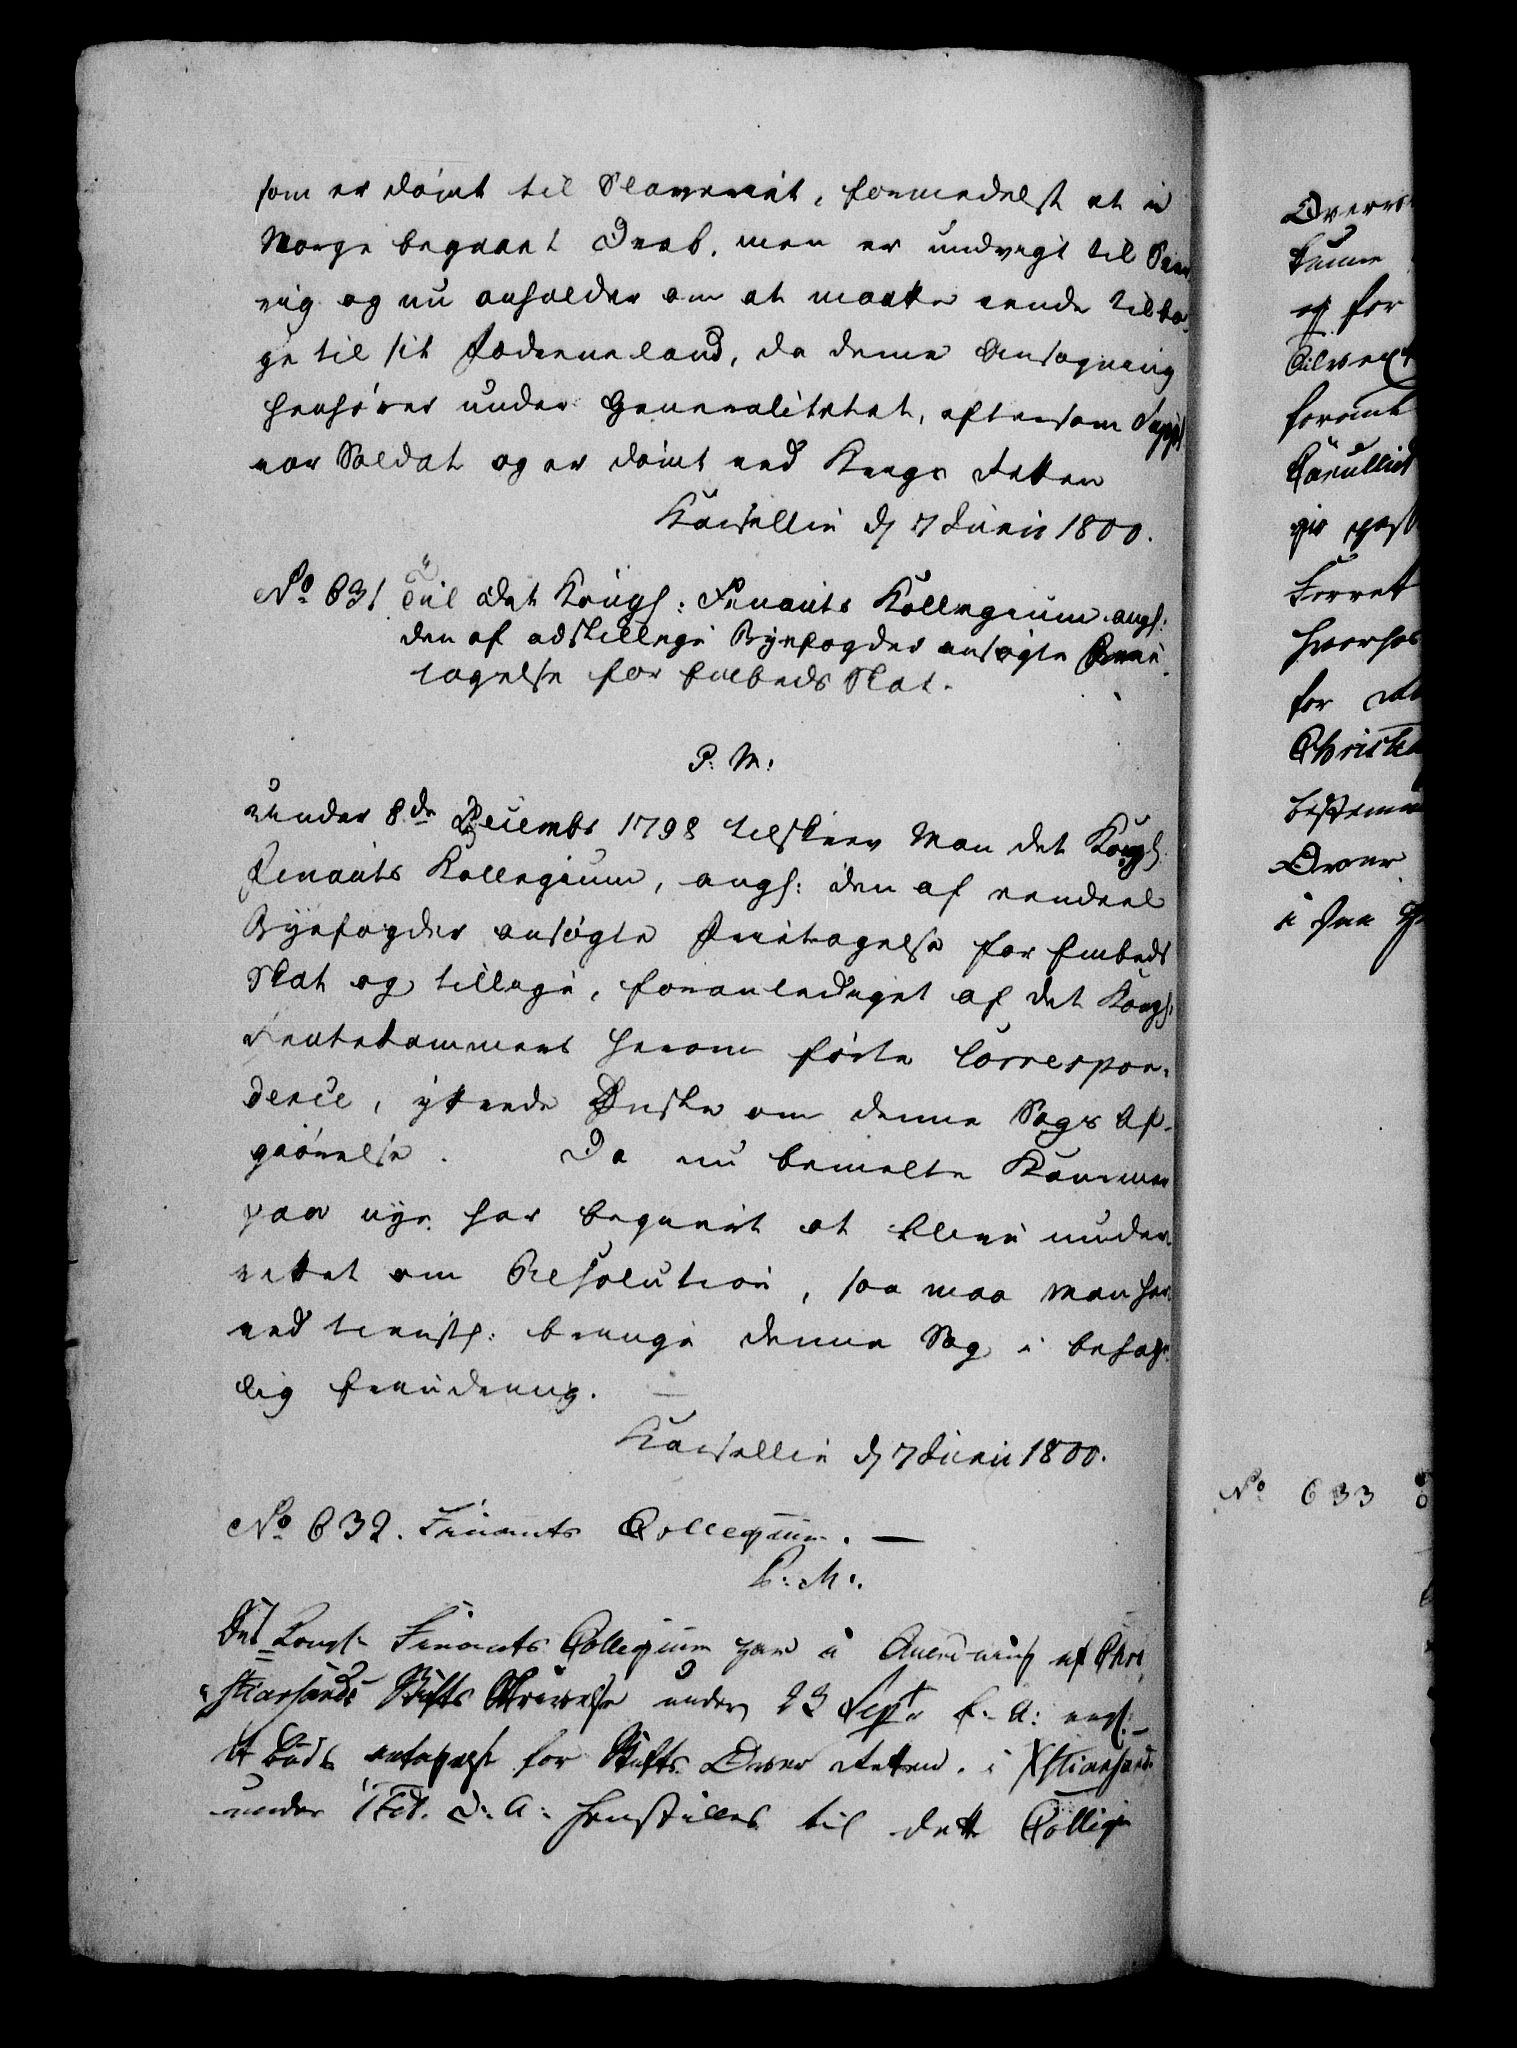 som er dømt til Slaveriet, formedelst et i
Norge begaaet Drab, men er undvigt til Sver
rig og nu anholder om at maatte vende tilba-
ge til sit Fødeneland, da denne Ansøgning
henhører under Generalitetet, eftersom Suppl
var Soldat og er dømt ved Krigs Retten
Kancellie d 7 Junii 1800.
No 631 Til det Kongl: Finants Kollegium angl:
den af adskillige Byefogder ansøgte Frie
tagelse for Embeds Skat.
P. M:
Under 8de Decembr 1798 tilskrev Man det Kongl:
Finants Kollegium, angl: den af eendeel
Byefogder ansøgte Frietagelse for Embeds
Skat og tillige, foranlediget af det Kongl:
Rentekammers herom førte Correspon-
dence, yttrede Ønske om denne Sags Af-
giørelse. Da nu bemelte Kammer
paa nye har begiert at blive under-
rettet om Resolution, saa maa Man her-
ved tienstl: bringe denne Sag i behage-
lig Erindring. —
Kancellie d 7 Junii 1800.
No 632. Finants Collegium. —
P: M:.
Det Kongl Finants Collegium har i Anledning af Chri
stiansands Stifts Skrivelse under 23 Septr f. A: angl.
for Stifts Over Retten i Xstiansand
under 1 d. A: henstillet til dette Collegie
Over
og for
Forrett
hvorhos
for
Christia
bestemm
Over
No 633